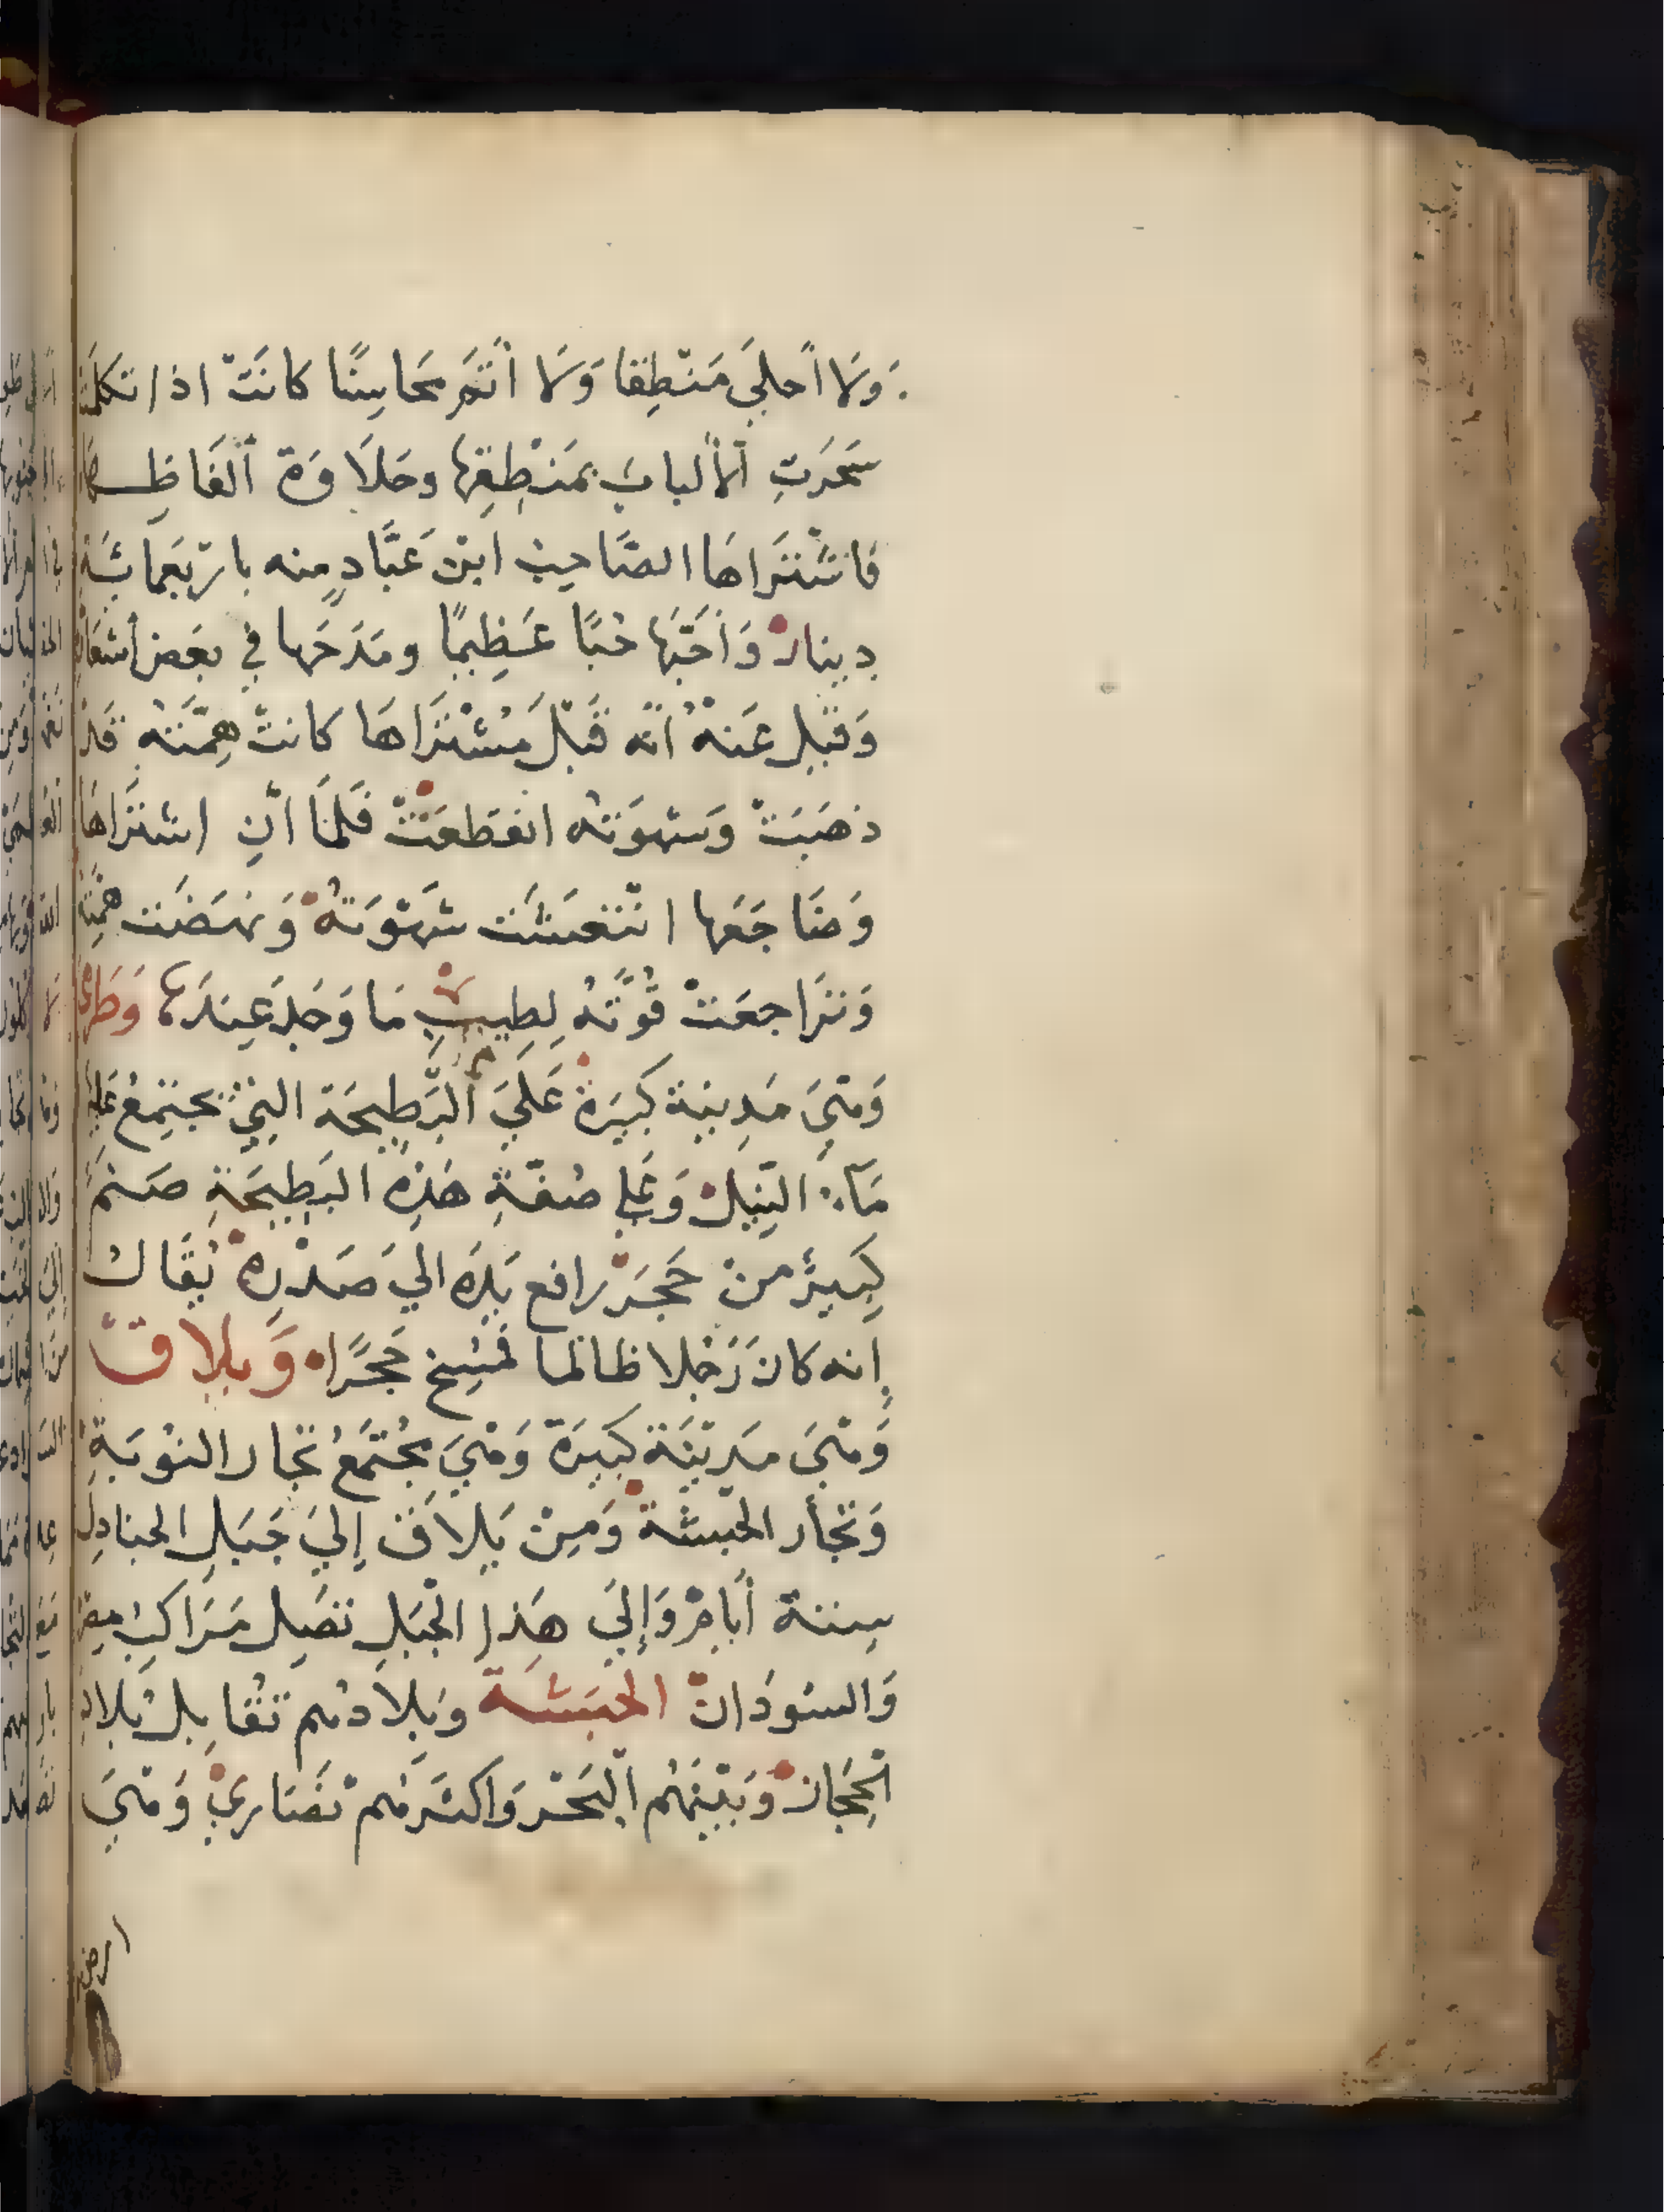 وَلَا أَحلَي مَنْطِقا وَلَا أَتَمَّ مَحَاسِنًا كانَتْ اذا تكلمت
سَحَرَتِ الألبابَ بمَنْطِقِهَا وحَلَاوَة ألفَاظِها
فاشْتَرَاهَا الصَّاحِبُ ابْنُ عَبَّادٍ منه باربَعمائَة
دينار وَأَحَبَّهَا حُبًا عَظِيمًا ومَدَحَها في بعَض أشعَاره
وَقيل عَنْهُ أنّه قَبْلَ مُشْتَرَاهَا كانتْ هِمَّتُه قَدْ
ذهَبَتْ وَشهوَتُه انقطعَتْ فَلَمَّا أنِ اشتَرَاهَا
وَضَاجَعَها انْتَعَشَت شَهْوَتهُ وَنهَضَت همَّته
وَتَرَاجعَتْ قُوَّتُهُ لِطِيبِ مَا وَجَدَ عِندَهَا وَطَرْمَى
وَهْيَ مَدِينَة كبيَرة عَلَي البَطِيحَة التِي يجتَمِعُ عَليها
مَآء النِّيل وَعَلي ضفَّةِ هَذِهِ البَطِيحَةِ صَنَم
كَبيرٌ مِنْ حَجَرٍ رافع يَدَه الي صَدْرِهِ يُقَال
إنه كانَ رَجُلا ظالما فَمُسِخ حَجَرًا وَبلاق
وَهْيَ مَدِيْنَة كبيَرَة وَهْيَ مجُتَمَعُ تجار النُوبَةِ
وَتجَّار الحَبشَة وَمِنْ بَلاق إِلَي جَبَلِ الجنادِل
سِتة أيام وَإِلَي هَذا الجْبَلِ تَصِل مَرَاكِبُ مِصْر
وَالسُودَان الحَبَشَة وبَلَادهُم تُقَابِل بَلاد
الحِجَاز وَبَيْنَهُم البَحْر وَاكثَرهُم نَصَاريْ وَهْيَ
ارض